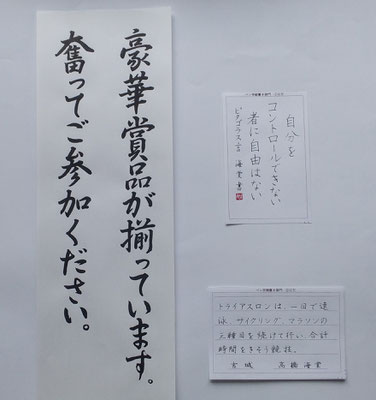 豪華賞品が揃っています。
奮ってご参加ください。
自分を
コントロールできない
者に自由はない
ピタゴラス言
トライアスロンは、一日で遠
泳、サイクリング、マラソンの
三種目を続けて行い、合計
時間をきそう競技。
宮城 高橋